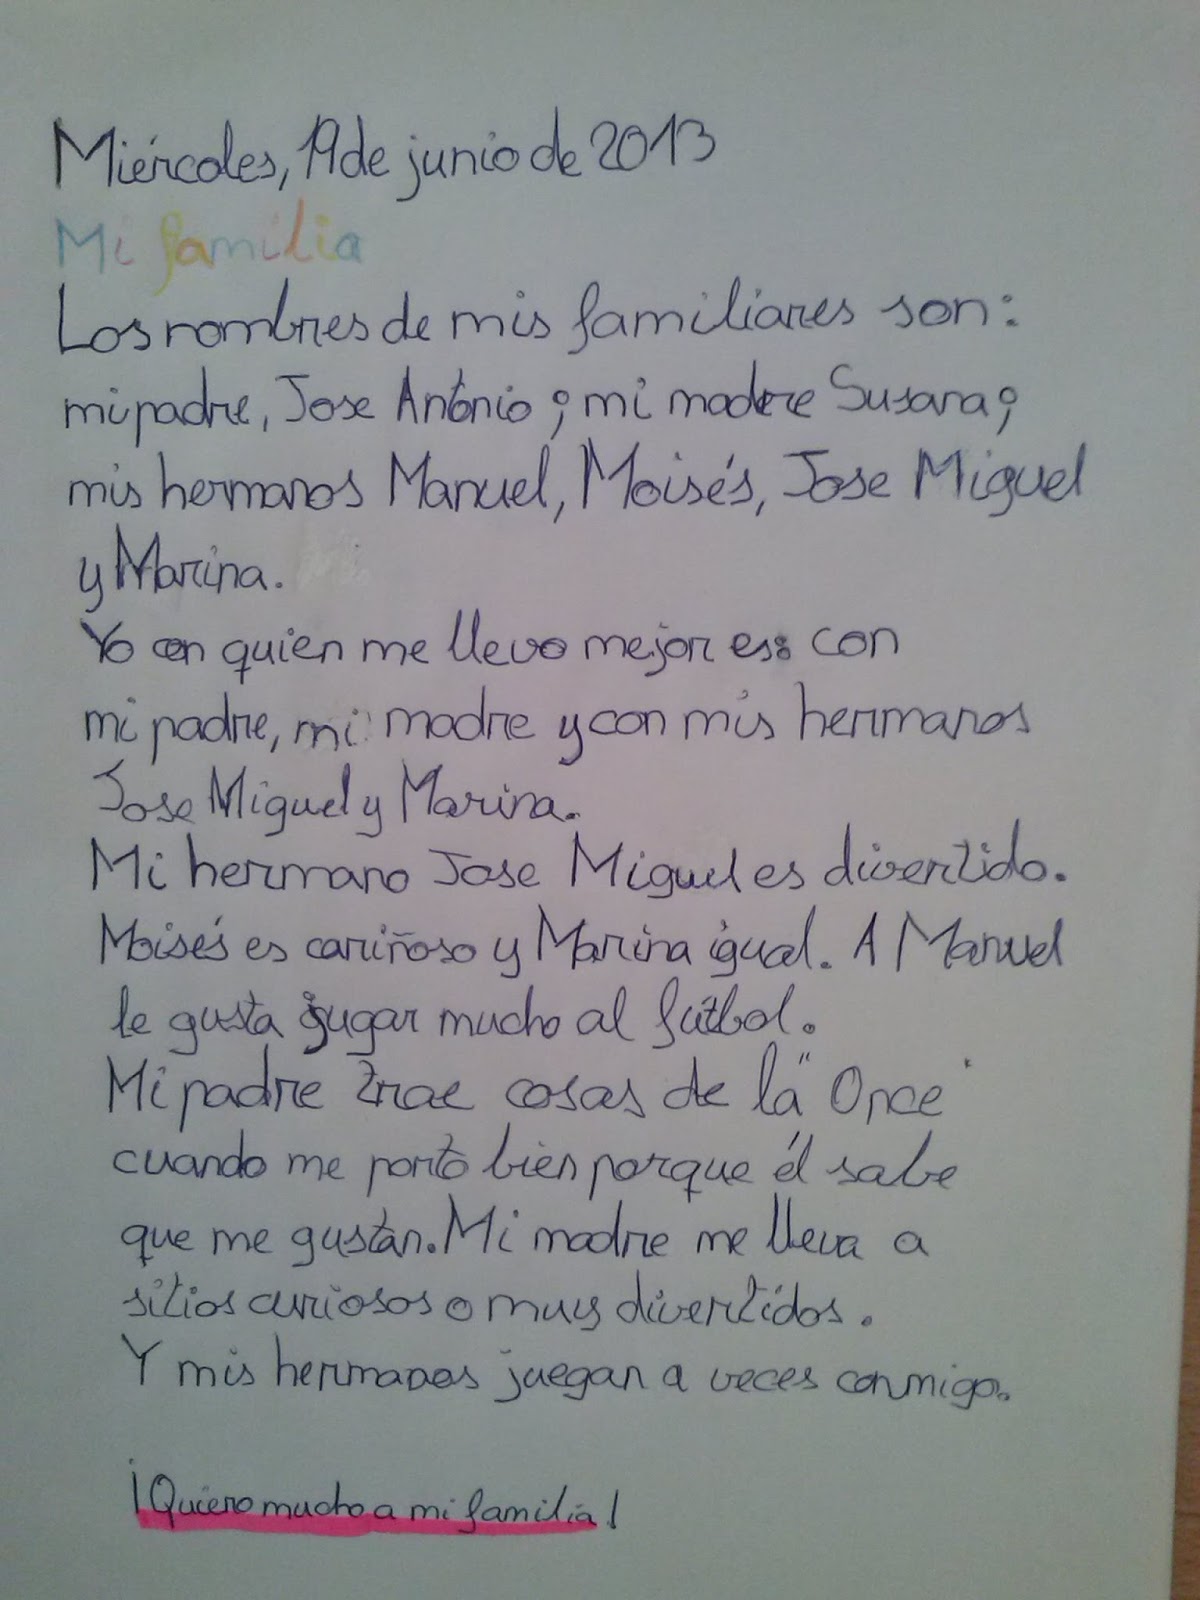 Miércoles, 19 de junio de 2013
Mi familia
Los nombres de mis familiares son:
mi padre, Jose António; mi madre Susana;
mis hermanos Manuel, Moisés, Jose Miguel
y Marina.
Yo con quien me llevo mejor es: con
mi padre, mi madre y con mis hermanos
Jose Miguel y Marina.
Mi hermano Jose Miguel es divertido.
Moisés es cariñoso y Marina igual. A Manuel
le gusta jugar mucho al fútbol.
Mi padre trae cosas de la "Once"
cuando me porto bien porque él sabe
que me gustan. Mi madre me lleva a
sitios curiosos o muy divertidos.
Y mis hermanos juegan a veces conmigo.
¡Quiero mucho a mi familia!